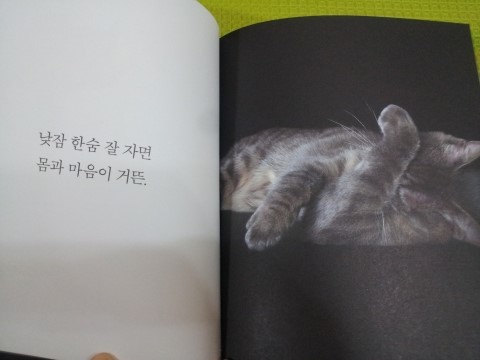 낮잠 한숨 잘 자면
몸과 마음이 거뜬.